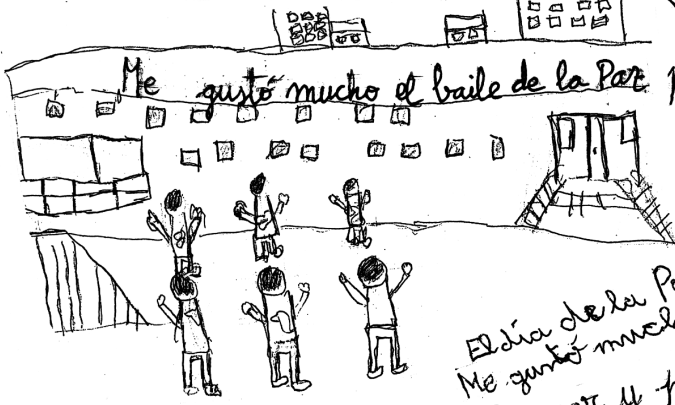 Me gustó mucho el baile de la Paz
El día de la
Me gustó
y